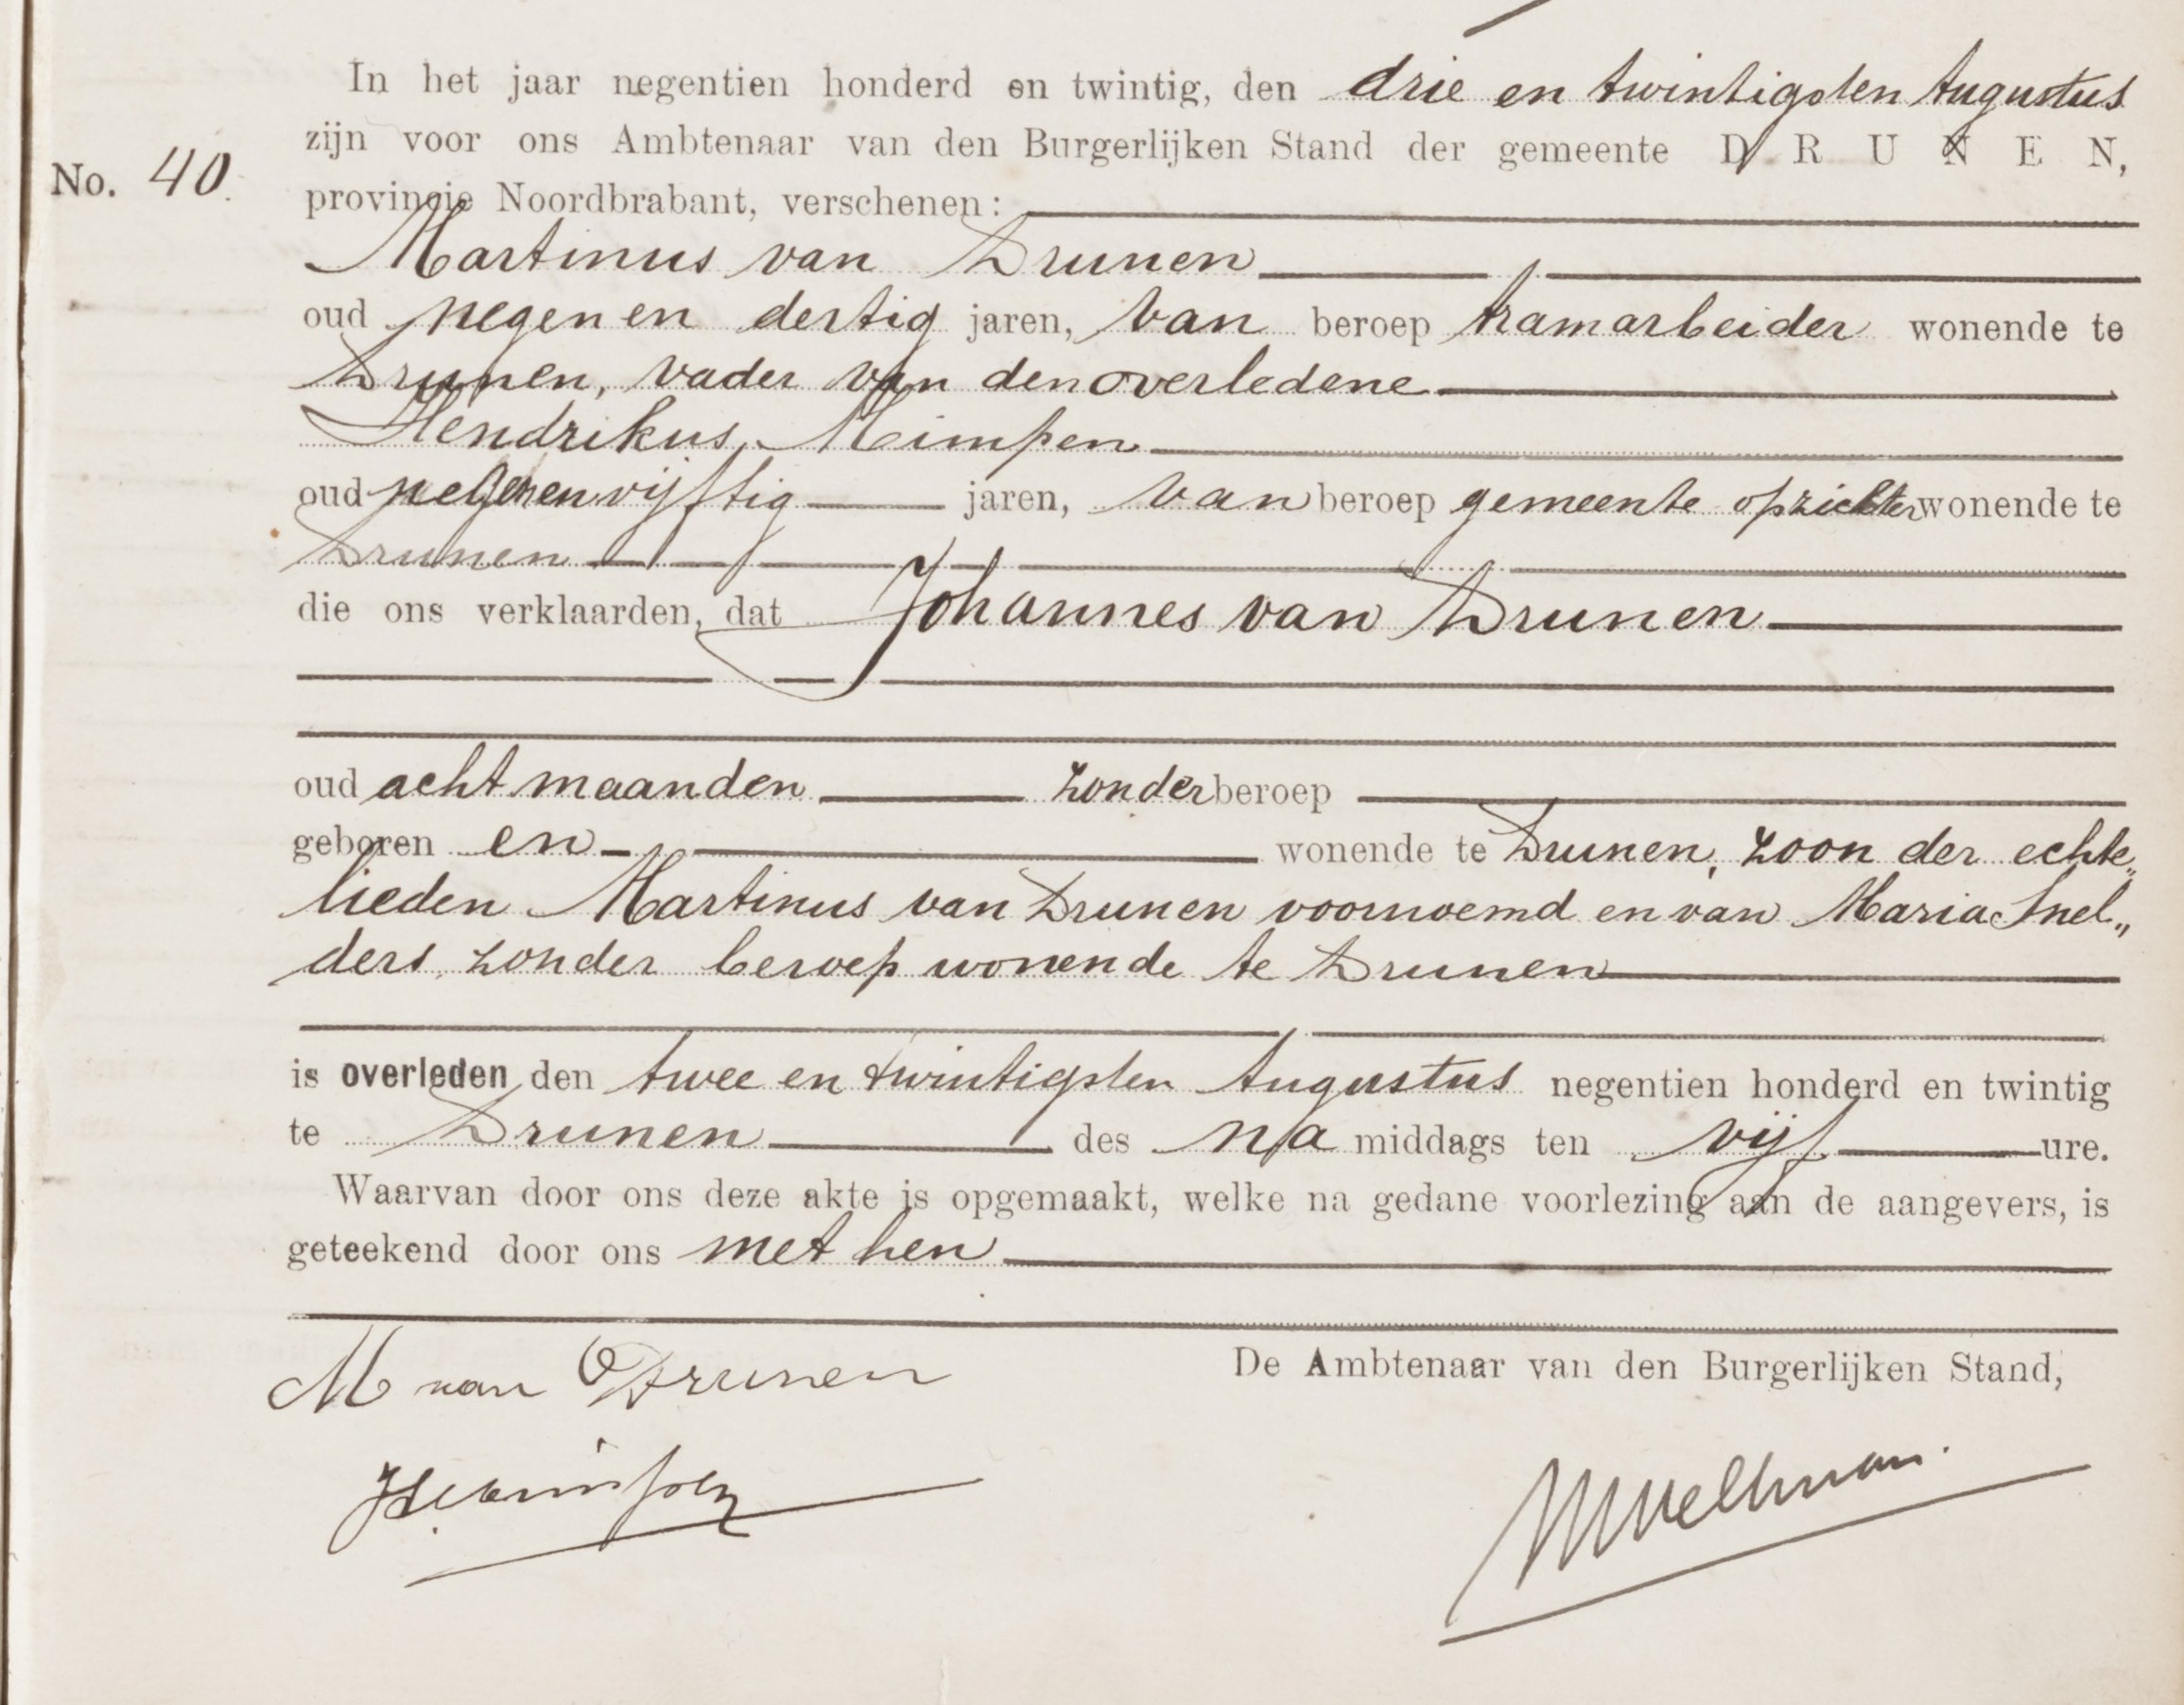 In het jaar negentien honderd en twintig, den drie en twintigsten Augustus
zijn voor ons Ambtenaar van den Burgerlijken Stand der gemeente DRUNEN,
No. 40.
provincie Noordbrabant, verschenen:
Martinus van Drunen
oud negen en dertig jaren, van beroep tramarbeider wonende te
Drunen, vader van den overledene
Hendrikus Mimpen
oud negenenvijftig jaren, van beroep gemeente opzichter wonende te
Drunen
die ons verklaarden, dat Johannes van Drunen
oud acht maanden zonder beroep
geboren en wonende te Drunen, zoon der echte„
lieden Martinus van Drunen voornoemd en van Maria Snel„
ders, zonder beroep wonende te Drunen
is overleden den twee en twintigsten Augustus negentien honderd en twintig
te Drunen des na middags ten vijf ure.
Waarvan door ons deze akte is opgemaakt, welke na gedane voorlezing aan de aangevers, is
geteekend door ons met hen
M van Drunen
De Ambtenaar van den Burgerlijken Stand,